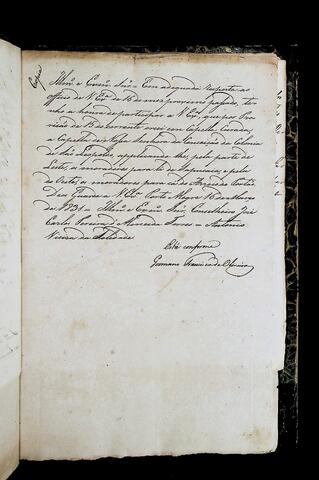 Copia
Illmo e Exmo Snr = Com adequada resposta ao
officio de V. Exa de 18 do mez proximo passado, te=
nho a honra de participar a V. Exa, que por Pro
visão de 15 do corrente erigi em Capella Curada,
a Capella de Nossa Senhora da Conceição da Colonia
de São Leopoldo, applicando lhe, pela parte de
Leste, os moradores para lá do Sapucaia, e pela
do Oeste, os moradores para cá do Arroio do Porta
Deos Guarde a V. Exa. Porto Alegre 18 de Março
de 1831 = Illmo e Exmo Snr Conselheiro José
Carlos Pereira d'Almeida Torres = Antonio
Vieira da Soledade
Está conforme
Germano Francisco de Oliveira